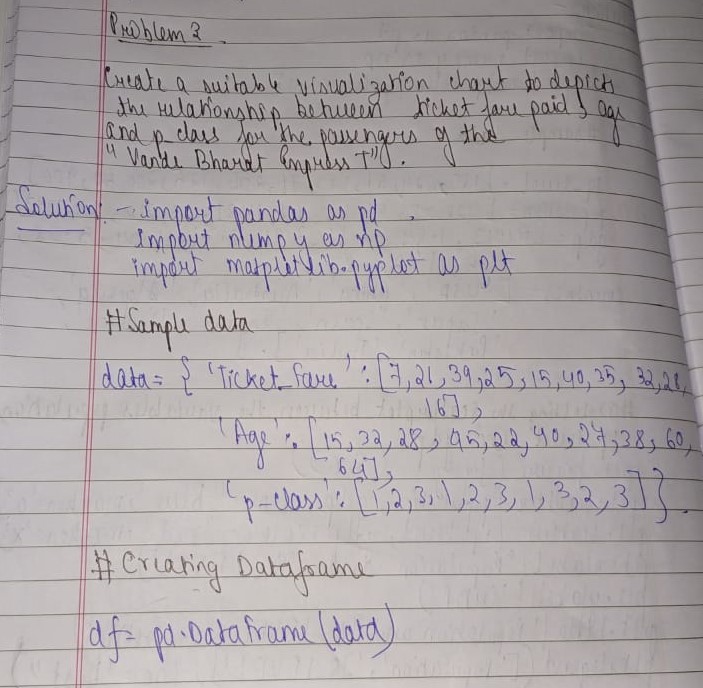 Problem 3
Create a suitable visualization chart to depict
the relationship between ticket fare paid, age
and p_class for the passengers of the
"Vande Bharat Express T".
Solution:- import pandas as pd
import numpy as np
import matplotlib.pyplot as plt
#Sample data
data = { 'Ticket_fare' : [7, 21, 39, 25, 15, 40, 35, 32, 28,
16],
'Age' : [15, 32, 28, 45, 22, 40, 27, 38, 60,
64],
'p-class' : [1, 2, 3, 1, 2, 3, 1, 3, 2, 3] }
# Creating Dataframe
df = pd.DataFrame (data)